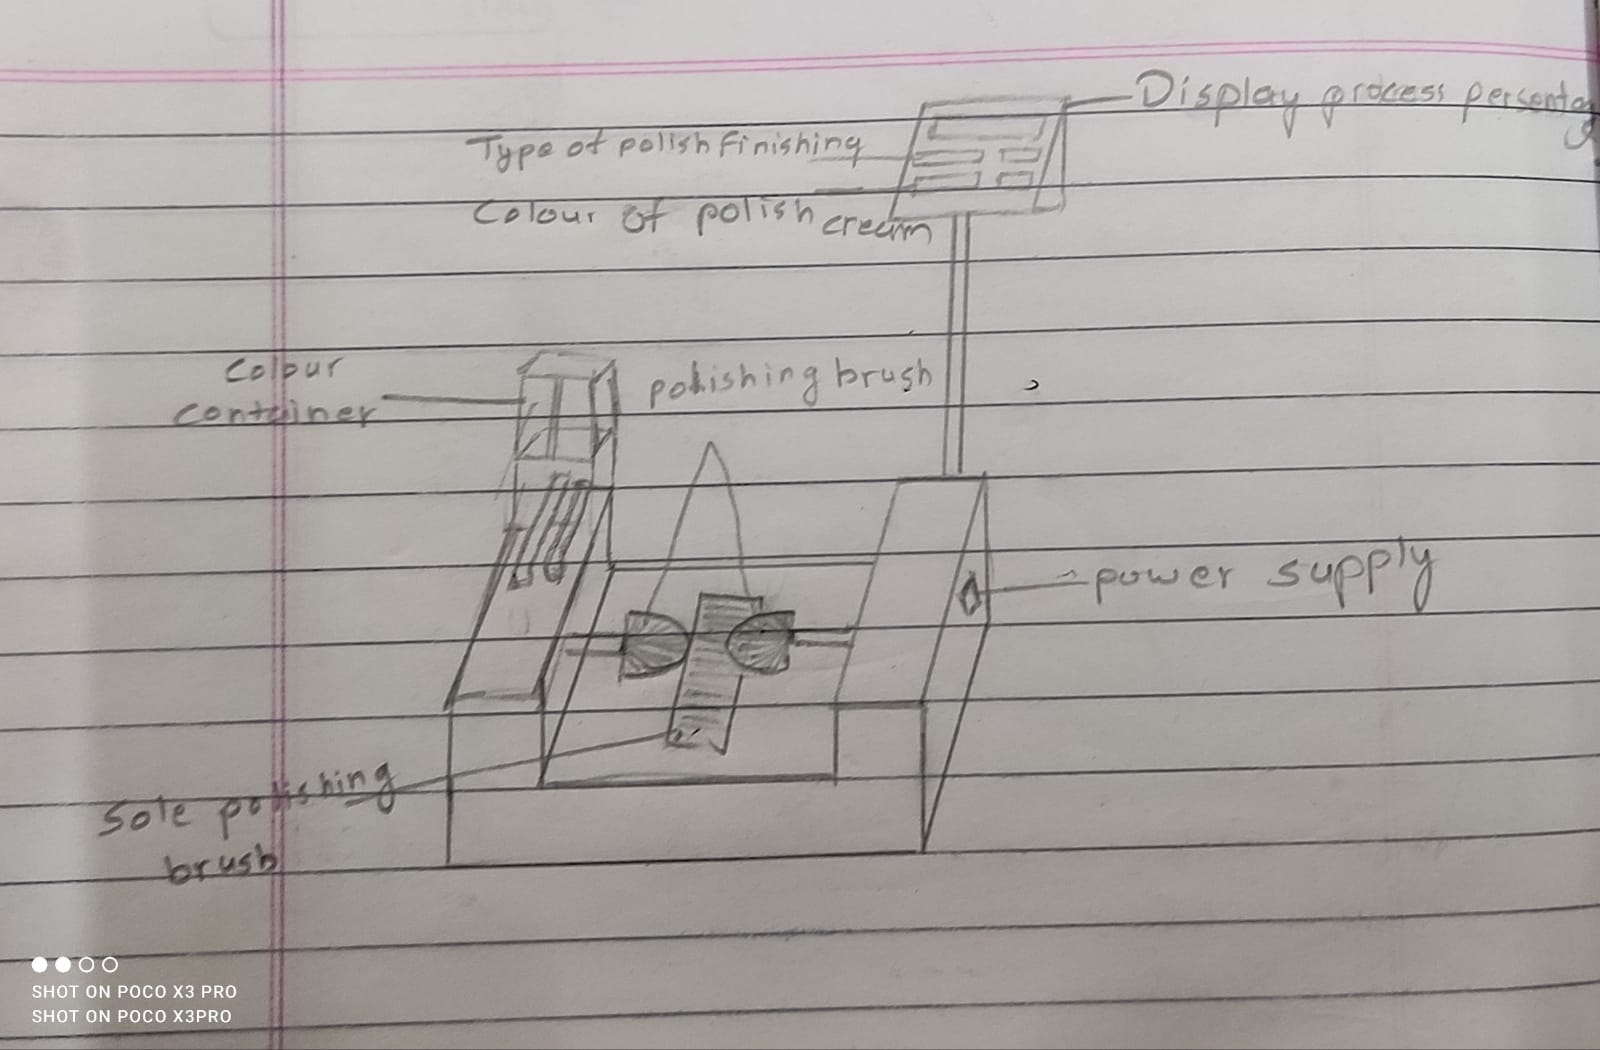 Display process persentag
Type of polish Finishing
Colour of polish cream
Colour
container
polishing brush
power supply
Sole polishing
brush
SHOT ON POCO X3 PRO
SHOT ON POCO X3PRO